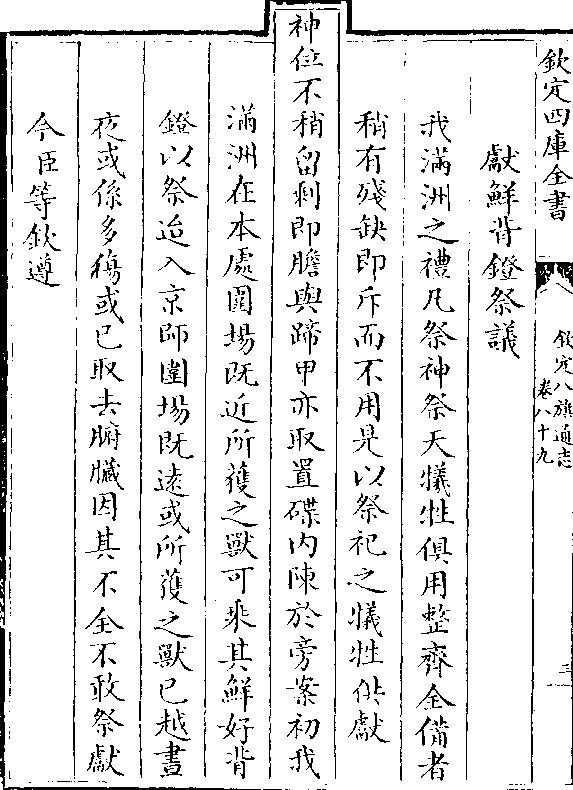 欽定四庫全書
欽定八旗通志
卷八十九
三
獻鮮背鐙祭議
我滿洲之禮凡祭神祭天犧牲俱用整齊全備者
稍有殘缺即斥而不用是以祭祀之犧牲供獻
神位不稍留剩即膽與蹄甲亦取置碟内陳於旁案初我
滿洲在本處圍場既近所獲之獸可乘其鮮好背
鐙以祭迨入京師圍場既遠或所獲之獸已越晝
夜或係多傷或已取去腑臟因其不全不敢祭獻
今臣等欽遵